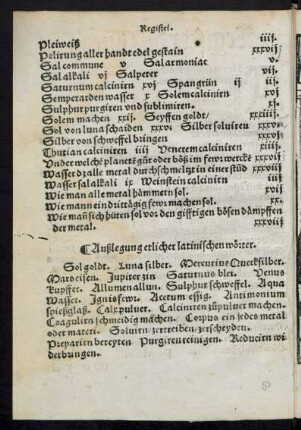 Register.
Pleiweiß iiij.
Polirung aller handt edel gestain xxxvij
Sal commune v Sal armoniac v.
Sal alkali vj Salpeter vj.
Saturnum calciniren xvj Spangrün ij ij.
Semperarden wasser x Solem calciniren xvj
Sulphur purgiren vnd sublimiren. xj.
Solem machen xxij. Seyffen goldt xxxiij.
Sol von luna schaiden xxxv. Silber soluiren xxxvj
Silber von schweffel bringen xxxvj
Thutiam calciniren iiij Venerem calciniren
Under welchē planetē gůt oder böß im fewr werckē xxxvij
Wasser dz alle metal durch schmeltzt in einer stūd xxxviij
Wasser sal alkali ix Weinstein calciniren iij
Wie man alle metal hämmern sol. xvij
Wie mann ein dürtägig fewr machen sol. xx.
Wie man sich hüten sol vor den gifftigen bösen dämpffen
der metal.
¶ Außlegung etlicher latinischen wörter.
Sol goldt. Luna silber. Mercurius Queckſilber.
Mars eisen. Jupiter zin Saturnus blei. Venus
kupffer. Allumen allun. Sulphur schweffel. Aqua
Wasser. Ignis fewr. Acetum essig. Antimonium
spießglaß. Calx puluer. Calciniren zů puluer machen.
Coagulirn schmeidig machen. Corpus ein jedes metal
oder materi. Soluirn zertreiben / zerscheyden.
Preparien bereyten Purgiren reinigen. Reducirn wi
derbungen.